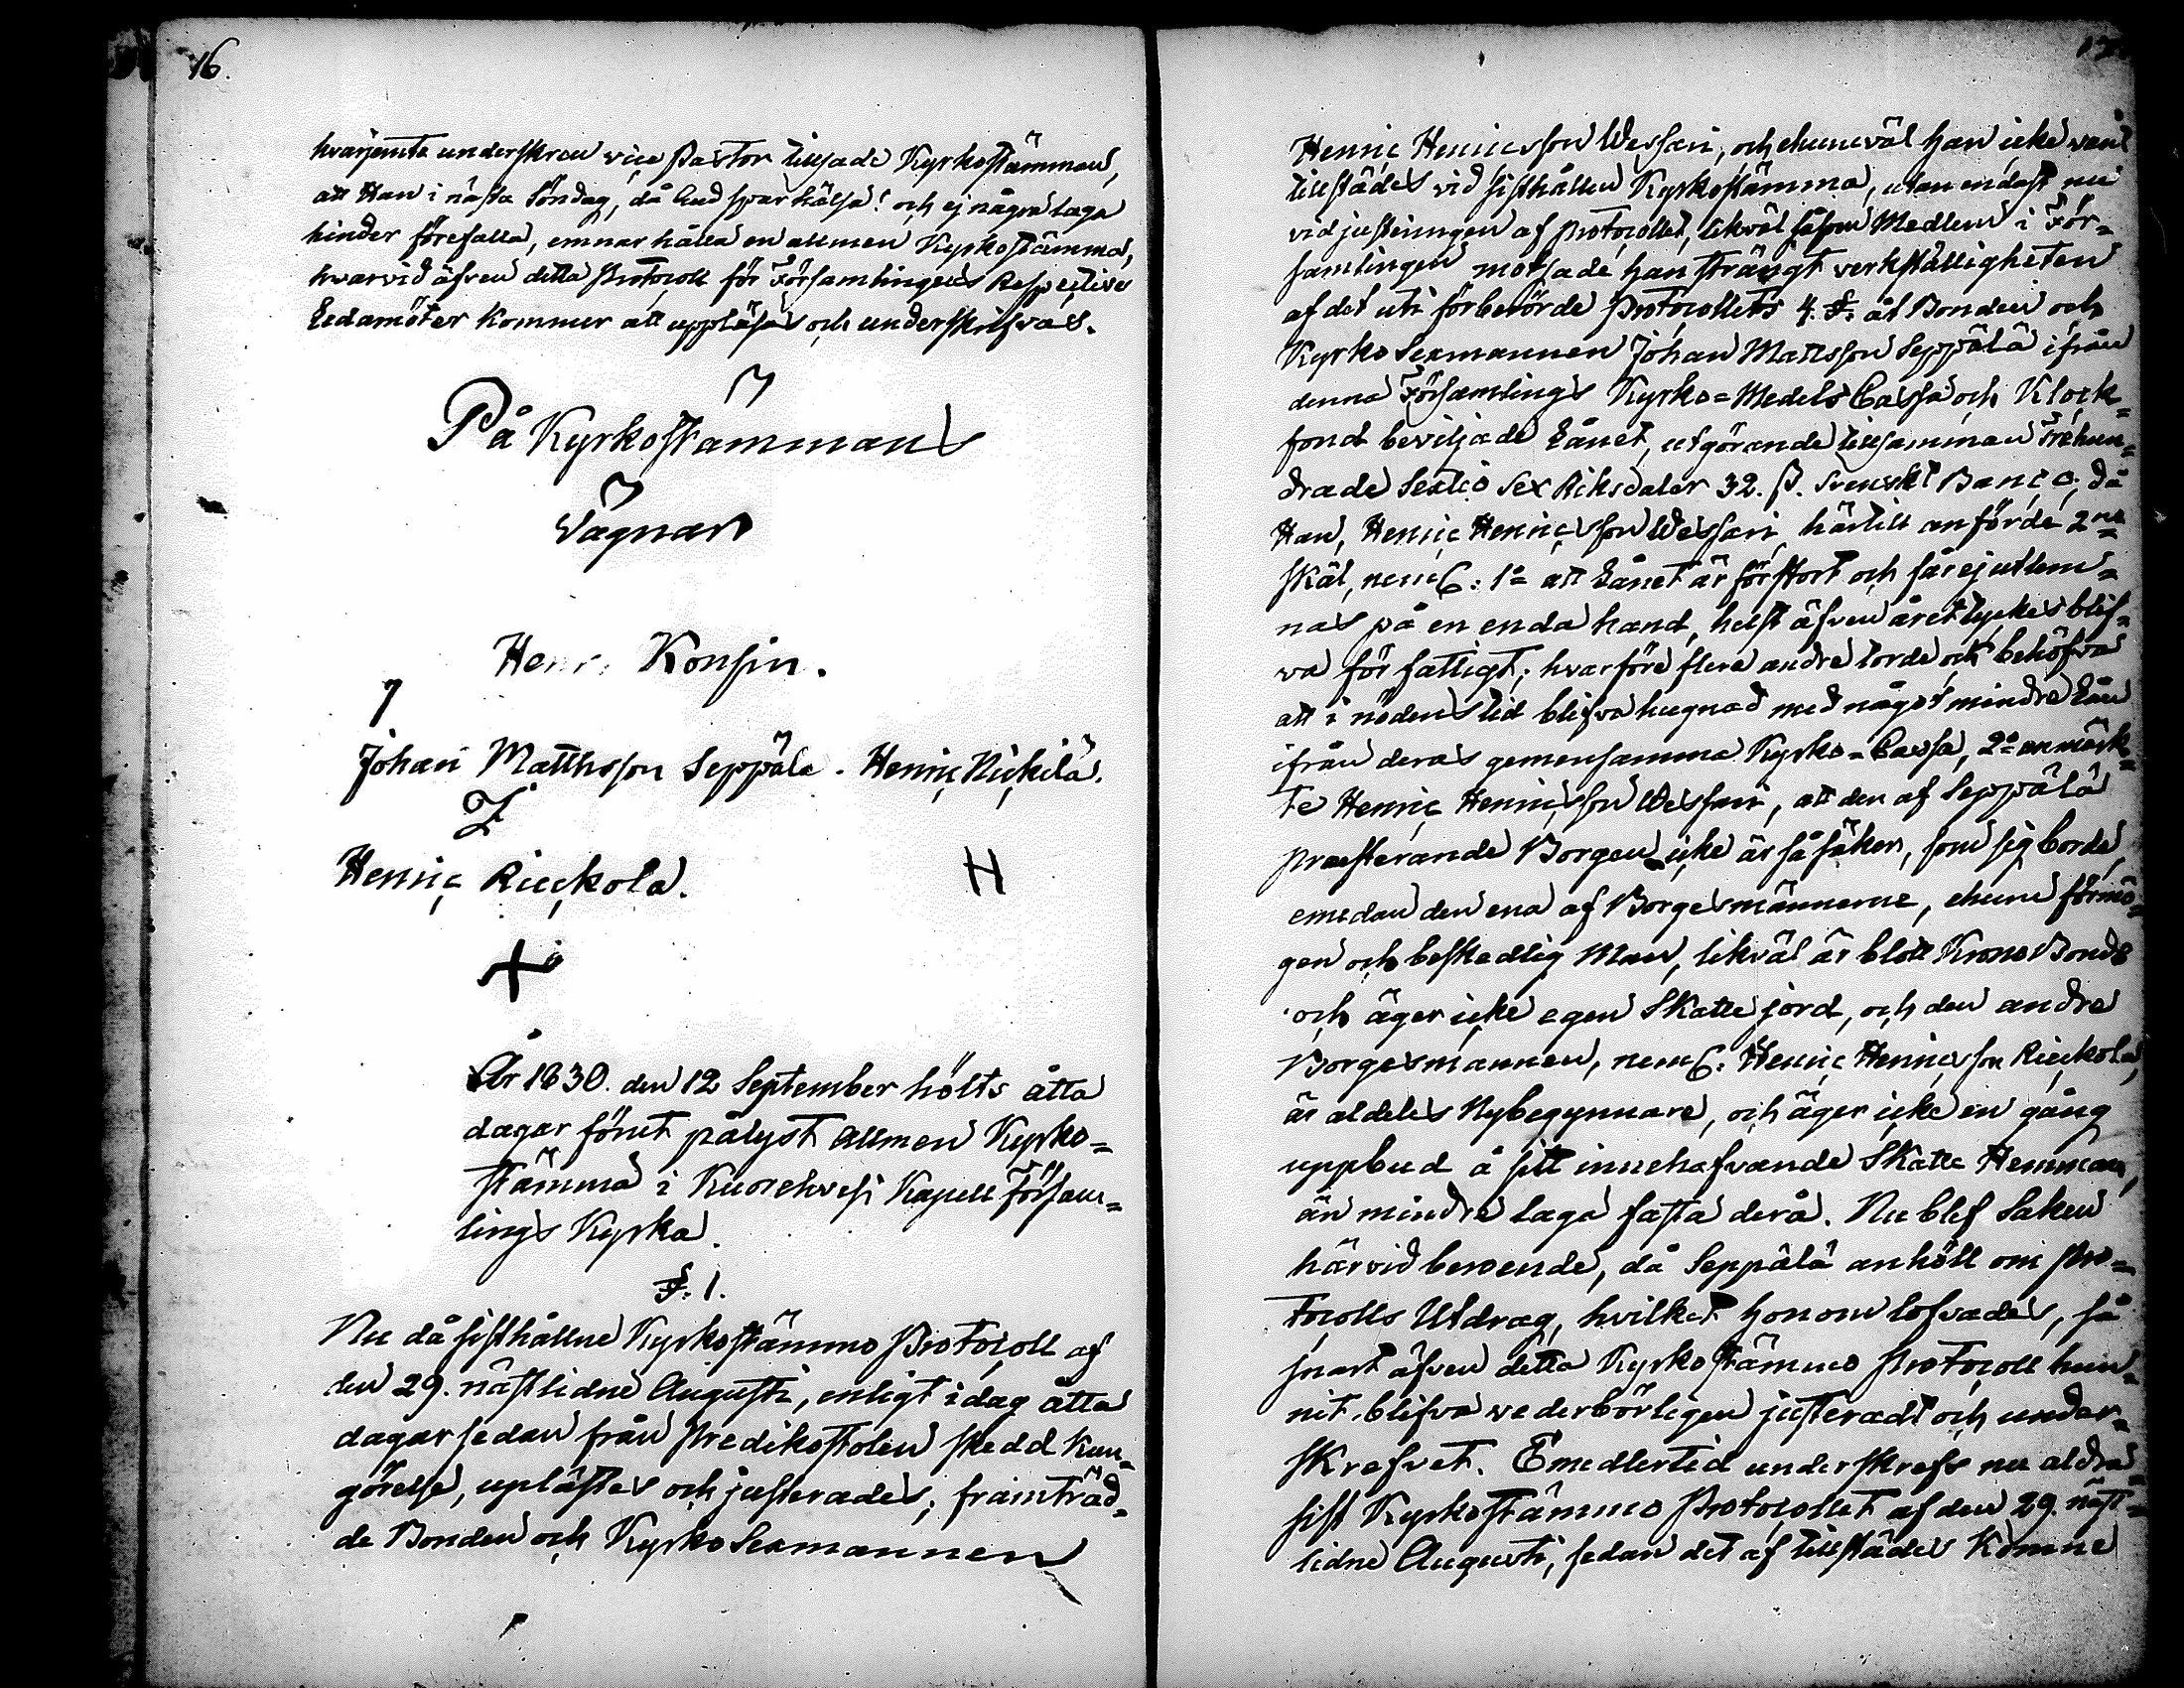 16.
hvarjemte underskren vice Pastor tillsade Kyrkostämman,
att Han i nästa Söndag, då Gud spar hälsa! och ej några laga
hinder förefalla, ernar hålla en allmen Kyrkostämma,
hvarvid äfven detta Protocoll för Församlingens Respective
Ledamöter kommer att uppläsas och underskrifvas.
På Kyrkostämmans
Vägnar
Henr. Konsin.
Johan Matthsson Seppälä. Henric Nickilä.
Henric Rieckola.
H
År 1830. den 12 September hölts åtta
dagar förut pålyst Allmen Kyrko=
stämma i Kuorehvesi Kapell Försam=
lings Kyrka.
§. 1.
Nu då sisthållne Kyrkostämmo Protocoll af
den 29. nästlidne Augusti, enligt i dag åtta
dagar sedan från Predikostolen skedd kun=
görelse, uplästes och justerades; framträd=
de Bonden och Kyrko Sexmannen
17.
Henric Henricsson Wessari, och ehuruväl han icke varit
tillstädes vid sisthållen Kyrkostämma, utan endast nu
vid justeringen af Protocollet, likväl såsom Medlem i För=
samlingen motsade han strängt verkställigheten
af det uti förberörde Protocollets 4. §. åt Bonden och
Kyrko Sexmannen Johan Mattsson Seppälä ifrån
denna Församlings Kyrko=Medels Cassa och Klock=
fond beviljade Lånet, utgörande tillsamman Trehun=
drade Sextio Sex Riksdaler 32. ß. Svenskt Banco; då
Han, Henric Henricsson Wessari, härtill anförde 2ne
skäl, neml: 1o att Lånet är för stort och får ej utlem=
nas på en enda hand, helst äfven året tyckes blif=
va för fattigt; hvarföre flere andre torde ock behöfva
att i nödens tid blifva hugnad med något mindre Lån
ifrån deras gemensamma Kyrko=Cassa, 2o anmärk=
te Henric Henricsson Wessari, att den af Seppälä
præsterande Borgen icke är så säker, som sig borde,
emedan den ena af Borgesmännerne, ehuru förmö=
gen och beskedlig Man, likväl är blott Krono Bonde
och äger icke egen Skatte jord, och den andre
Borgesmannen, neml: Henric Henricsson Rieckola,
är aldeles Nybegynnare, och äger icke en gång
uppbud å sitt innehafvande Skatte Hemman,
än mindre laga fasta derå. Nu blef Saken
härvid beroende, då Seppälä anhöll om Pro=
tocolls Utdrag, hvilket honom lofvades, så
snart äfven detta Kyrkostämmo Protocoll hun=
nit blifva vederbörligen justeradt och under=
skrefvet. Emedlertid underskrefs nu aldra=
sist Kyrkostämmo Protocollet af den 29. näst=
lidne Augusti, sedan det af tillstädes komne